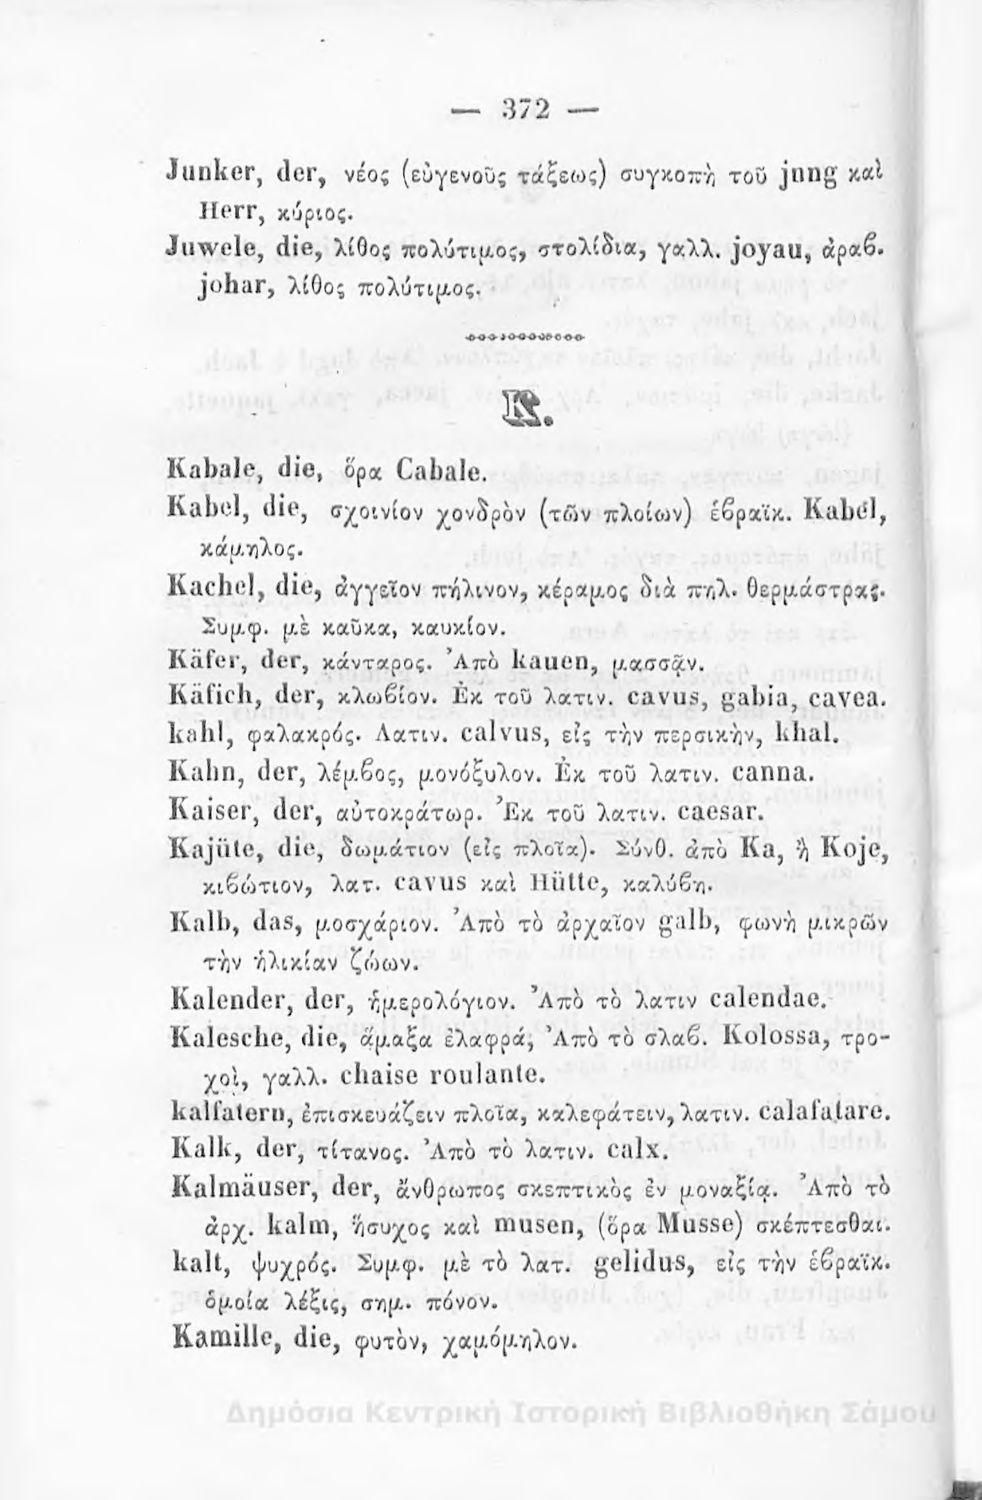 — 372 —
Junker, der, νέος (εὐγενοῦς τάξεως) συγκοπὴ τοῦ jung καὶ
Herr, κύριος.
Juwele, die, λίθος πολύτιμος, στολίδια, γαλλ. joyau, ἀραβ.
johar, λίθος πολύτιμος.
K.
Kabale, die, ὅρα Cabale.
Kabel, die, σχοινίον χονδρὸν (τῶν πλοίων) ἑβραϊκ. Kabél,
κάμηλος.
Kachel, die, ἀγγεῖον πήλινον, κέραμος διὰ πηλ. θερμάστρας.
Συμφ. μὲ καῦκα, καυκίον.
Käfer, der, κάνταρος. Ἀπὸ kauen, μασσᾷν.
Käfich, der, κλωβίον. Ἐκ τοῦ λατιν. cavus, gabia, cavea.
kahl, φαλακρός. Λατιν. calvus, εἰς τὴν περσικὴν, khal.
Kahn, der, λέμβος, μονόξυλον. Ἐκ τοῦ λατιν. canna.
Kaiser, der, αὐτοκράτωρ. Ἐκ τοῦ λατιν. caesar.
Kajüte, die, δωμάτιον (εἰς πλοῖα). Σύνθ. ἀπὸ Ka, ἢ Koje,
κιβώτιον, λατ. cavus καὶ Hütte, καλύβη.
Kalb, das, μοσχάριον. Ἀπὸ τὸ ἀρχαῖον galb, φωνὴ μικρῶν
τὴν ἡλικίαν ζώων.
Kalender, der, ἡμερολόγιον. Ἀπὸ τὸ λατιν calendae.
Kalesche, die, ἅμαξα ἐλαφρά, Ἀπὸ τὸ σλαβ. Kolossa, τρο-
χοὶ, γαλλ. chaise roulante.
kalfatern, ἐπισκευάζειν πλοῖα, καλεφάτειν, λατιν. calafatare.
Kalk, der, τίτανος. Ἀπὸ τὸ λατιν. calx.
Kalmäuser, der, ἄνθρωπος σκεπτικὸς ἐν μοναξίᾳ. Ἀπὸ τὸ
ἀρχ. kalm, ἥσυχος καὶ musen, (ὅρα Musse) σκέπτεσθαι.
kalt, ψυχρός. Συμφ. μὲ τὸ λατ. gelidus, εἰς τὴν ἑβραϊκ.
ὁμοία λέξις, σημ. πόνον.
Kamille, die, φυτὸν, χαμόμηλον.
Δημόσια Κεντρική Ιστορική Βιβλιοθήκη Σάμου